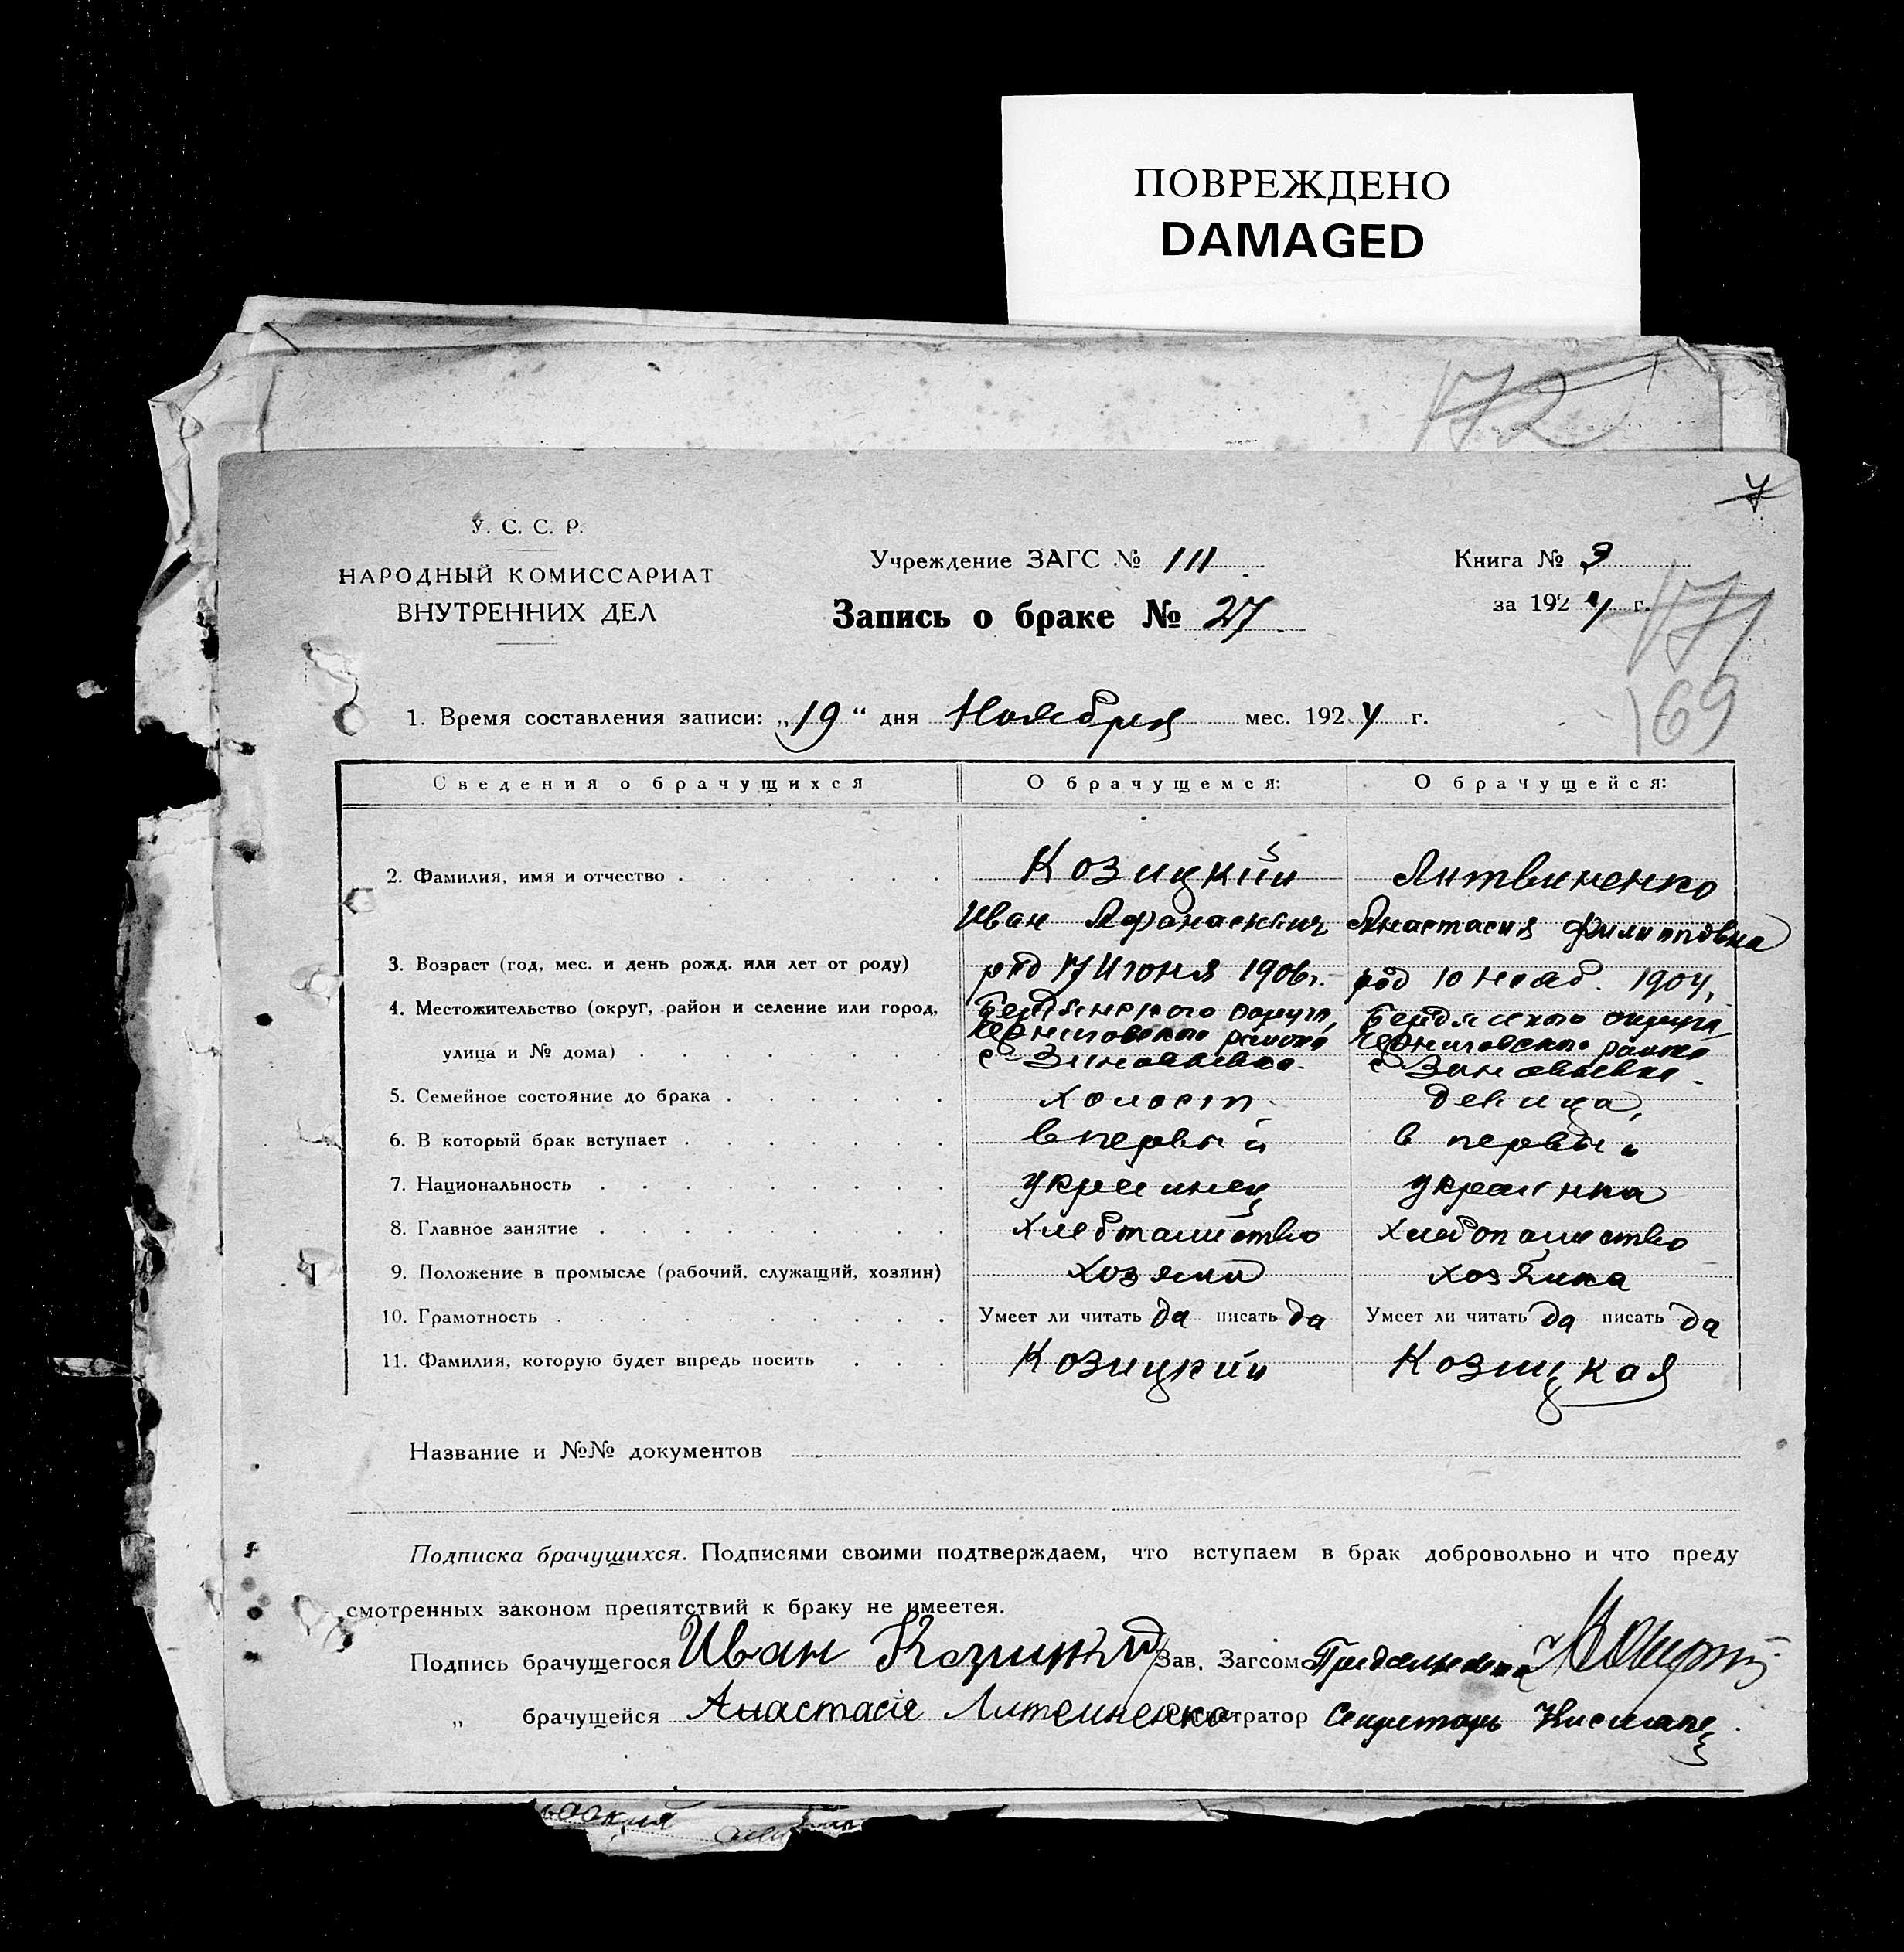 ПОВРЕЖДЕНО
DAMAGED
172
У. С. С. Р.
НАРОДНЫЙ КОМИССАРИАТ
ВНУТРЕННИХ ДЕЛ
Учреждение ЗАГС № 111
Запись о браке № 27
Книга № 3
за 1924 г.
171
169
1. Время составления записи: „19“ дня Ноября мес. 1924 г.
Сведения о брачущихся О брачущемся: О брачущейся:
2. Фамилия, имя и отчество Козицкий Литвиненко
Иван Афанасиевич Анастасия Филипповна
3. Возраст (год, мес. и день рожд. или лет от роду) род 17 Июня 1906 г. род 10 Нояб. 1904,
4. Местожительство (округ, район и селение или город, Бердянского округа, Бердянского округа,
Черниговского района Черниговского района
улица и № дома) с Зиновьевка. с Зиновьевка.
5. Семейное состояние до брака холост. девица,
6. В который брак вступает в первый в первый
7. Национальность украинец украинка
8. Главное занятие хлебопашество хлебопашество
9. Положение в промысле (рабочий, служащий, хозяин) хозяин хозяйка
10. Грамотность Умеет ли читать да писать да Умеет ли читать да писать да
11. Фамилия, которую будет впредь носить Козицкий Козицкая
Название и №№ документов
Подписка брачущихся. Подписями своими подтверждаем, что вступаем в брак добровольно и что преду
смотренных законом препятствий к браку не имеетея.
Подпись брачущегося Иван Козицкий Зав. Загсом
„ брачущейся Анастасія Литвиненко Регистратор Секретарь